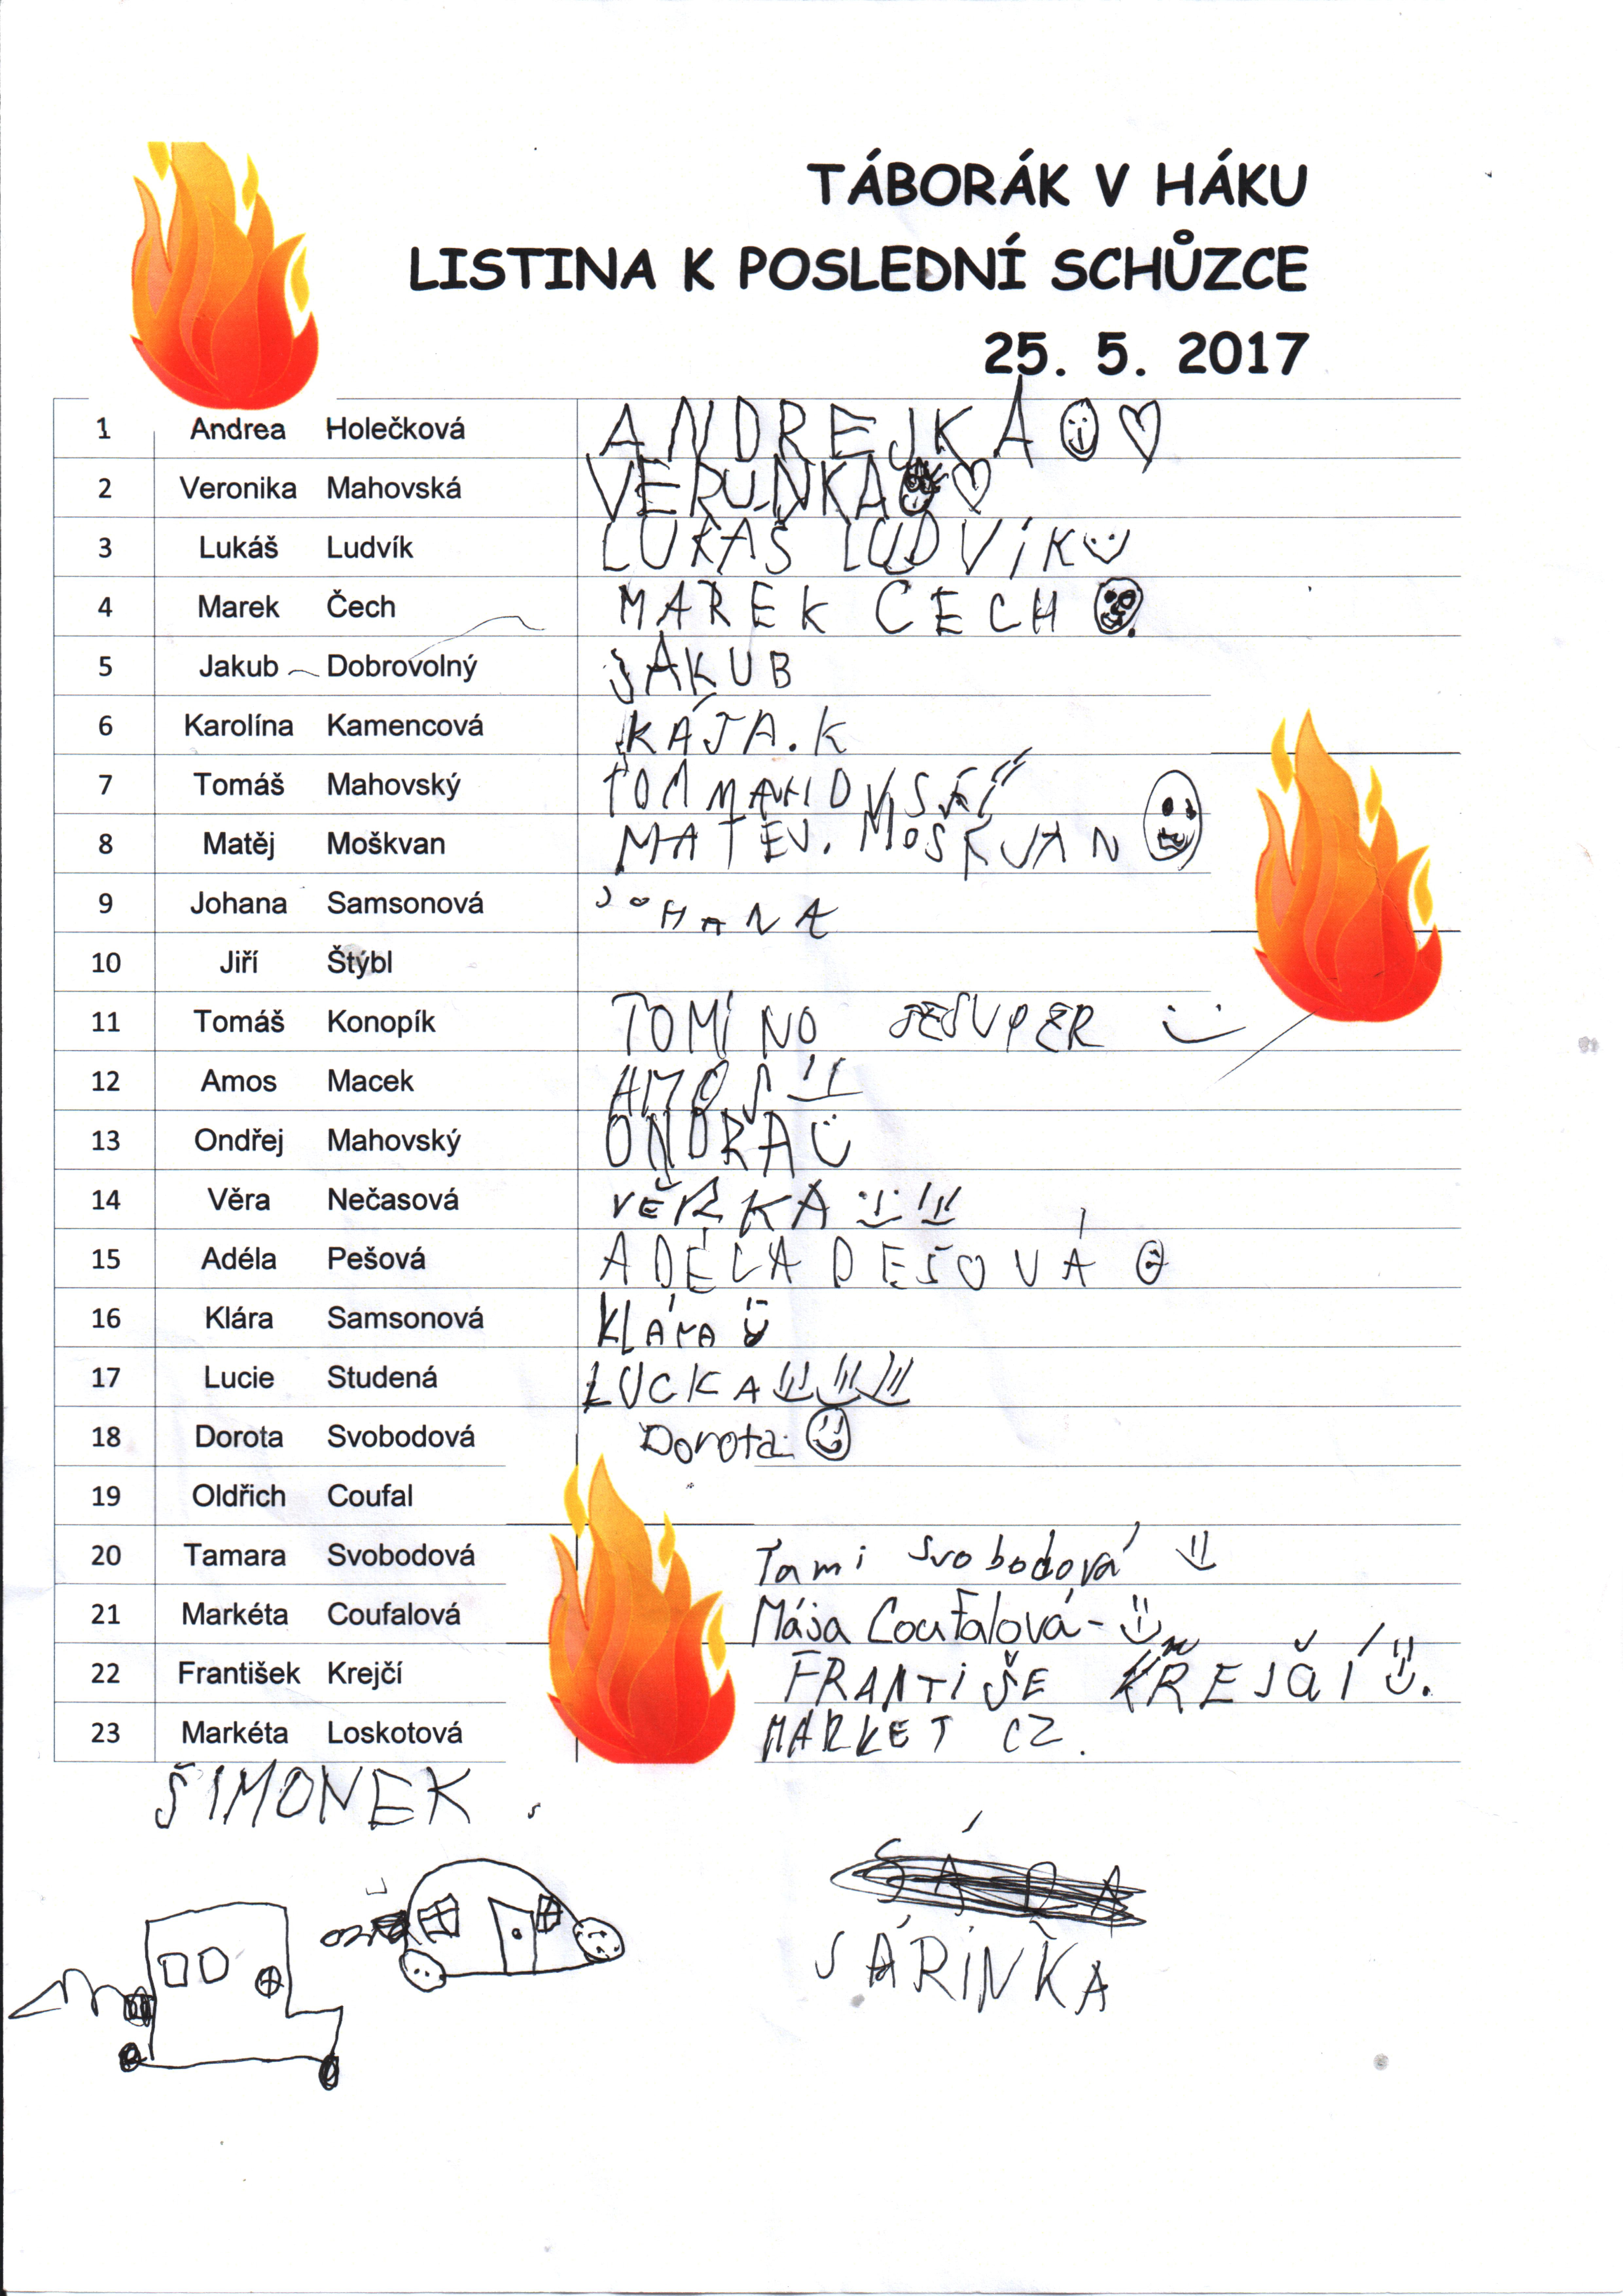 TÁBORÁK V HÁKU
LISTINA K POSLEDNÍ SCHŮZCE
25. 5. 2017
1 Andrea Holečková ANDREJKA
2 Veronika Mahovská VERUNKA
3 Lukáš Ludvík LUKAŠ LUDVÍK
4 Marek Čech MAREK CECH
5 Jakub Dobrovolný JAKUB
6 Karolína Kamencová KÁJA.K
7 Tomáš Mahovský TOM
8 Matěj Moškvan MATEJ. MOŠKVAN
9 Johana Samsonová JOHANA
10 Jiří Štýbl
11 Tomáš Konopík TOMINO JESUPER
12 Amos Macek AMOS
13 Ondřej Mahovský ONDRA
14 Věra Nečasová VĚRKA
15 Adéla Pešová ADÉLA PEŠOVÁ
16 Klára Samsonová KLÁRA
17 Lucie Studená LUCKA
18 Dorota Svobodová Dorota
19 Oldřich Coufal
20 Tamara Svobodová Tami Svobodová
21 Markéta Coufalová Mája Coufalová-
22 František Krejčí FRANTIŠE
23 Markéta Loskotová MARKET CZ.
ŠIMONEK
SÁRA
SÁRINKA